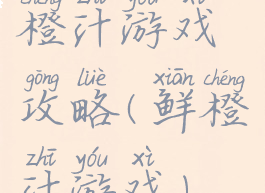 chéng zhī yóu xì
橙汁游戏
gōng lüè xiān chéng
攻略(鲜橙
zhī yóu xì
汁游戏)